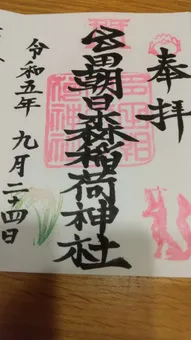 奉拝
宮田朝日森稲荷神社
令和五年 九月二十四日